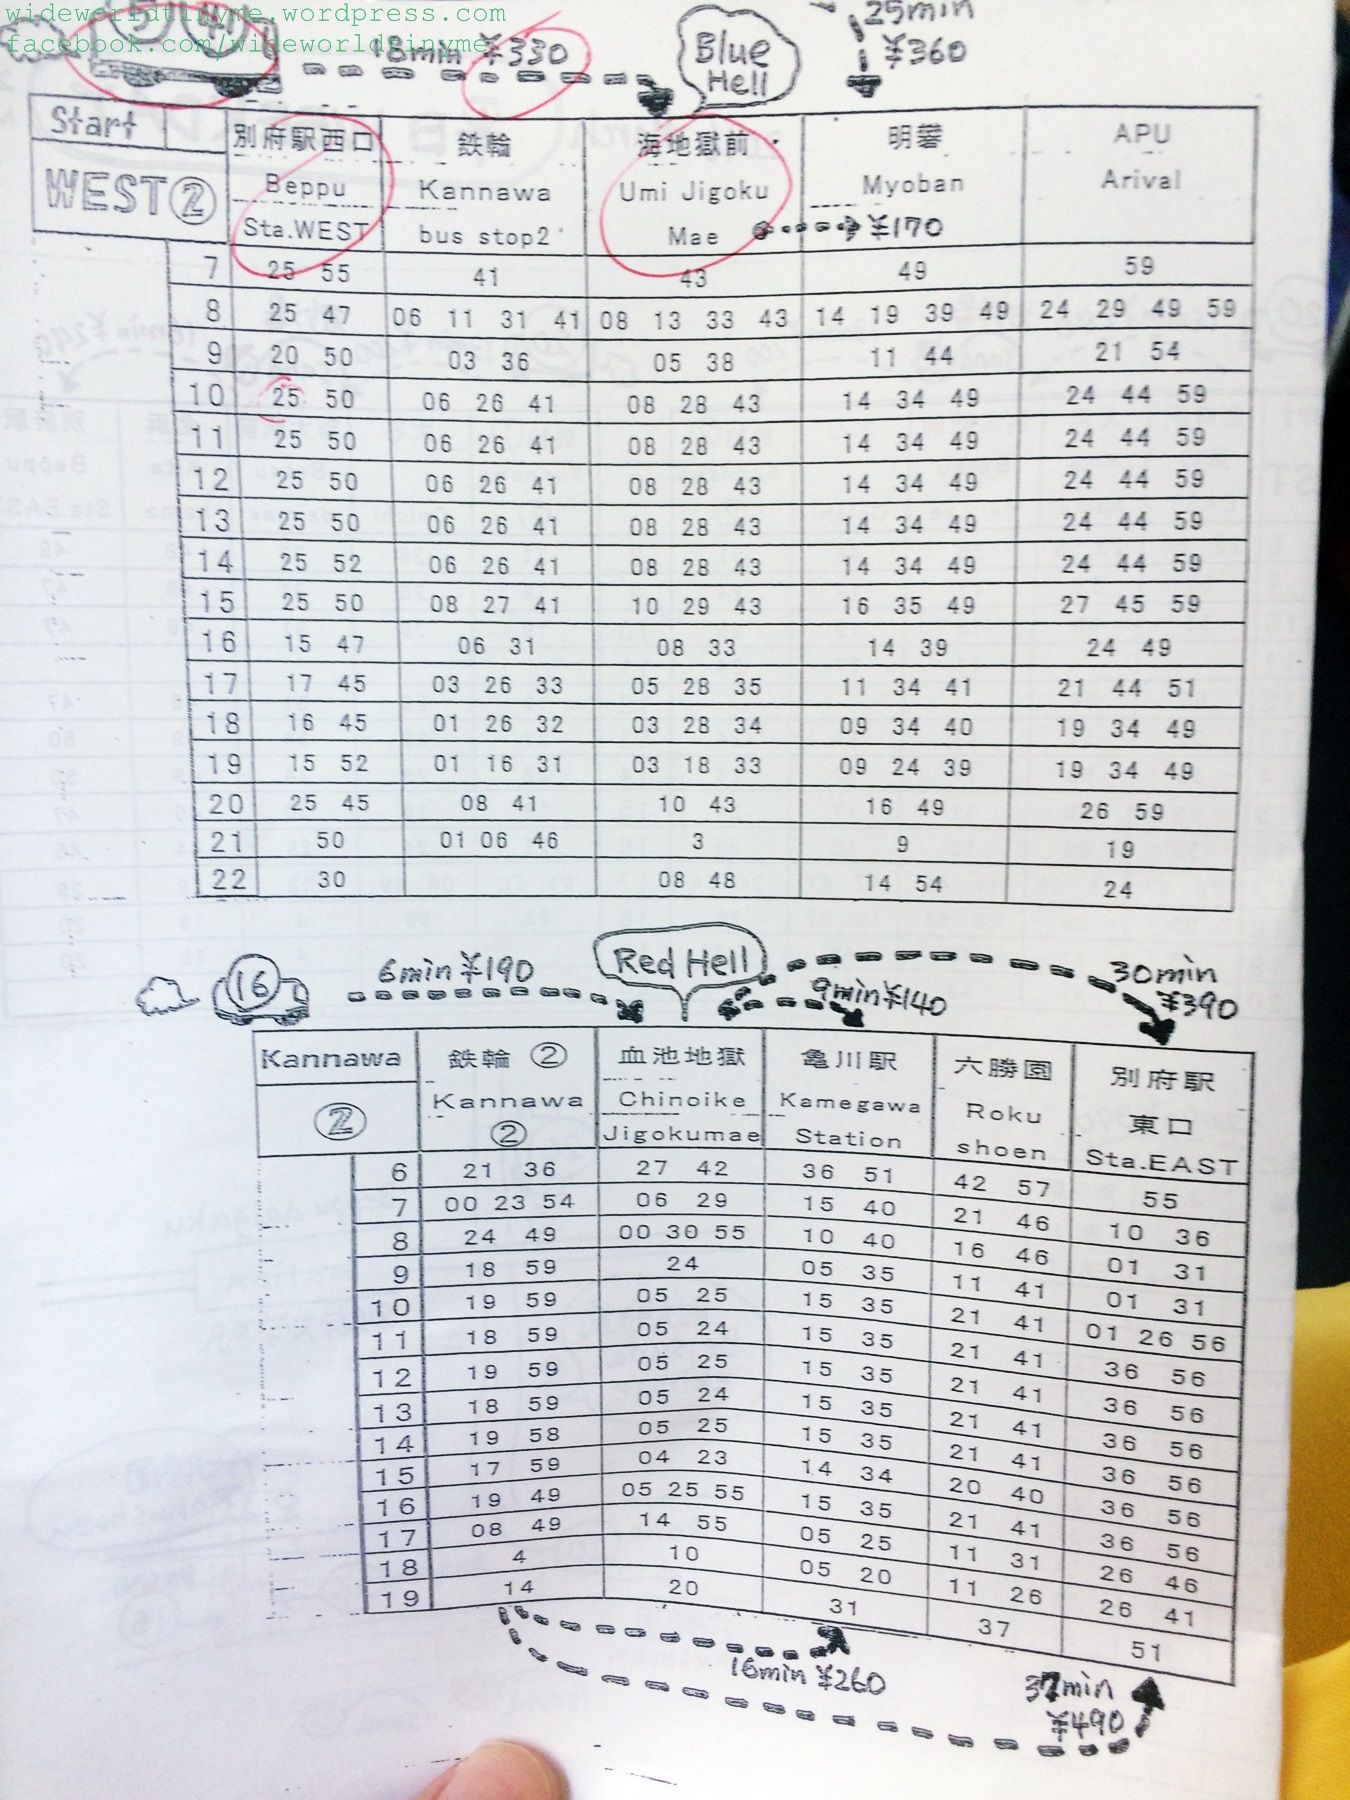 wideworldtinyme.wordpress.com
facebook.com/wideworldtinyme
18min ¥330
Blue Hell
25min ¥360
Start 別府駅西口 鉄輪 海地獄前 明礬 APU
WEST② Beppu Kannawa Umi Jigoku Myoban Arival
Sta.WEST bus stop2 Mae ¥170
7 25 55 41 43 49 59
8 25 47 06 11 31 41 08 13 33 43 14 19 39 49 24 29 49 59
9 20 50 03 36 05 38 11 44 21 54
10 25 50 06 26 41 08 28 43 14 34 49 24 44 59
11 25 50 06 26 41 08 28 43 14 34 49 24 44 59
12 25 50 06 26 41 08 28 43 14 34 49 24 44 59
13 25 50 06 26 41 08 28 43 14 34 49 24 44 59
14 25 52 06 26 41 08 28 43 14 34 49 24 44 59
15 25 50 08 27 41 10 29 43 16 35 49 27 45 59
16 15 47 06 31 08 33 14 39 24 49
17 17 45 03 26 33 05 28 35 11 34 41 21 44 51
18 16 45 01 26 32 03 28 34 09 34 40 19 34 49
19 15 52 01 16 31 03 18 33 09 24 39 19 34 49
20 25 45 08 41 10 43 16 49 26 59
21 50 01 06 46 3 9 19
22 30 08 48 14 54 24
16
6min ¥190
Red Hell
9min ¥140
30min ¥390
Kannawa 鉄輪② 血池地獄 亀川駅 六勝園 別府駅
② Kannawa Chinoike Kamegawa Roku 東口
② Jigokumae Station shoen Sta.EAST
6 21 36 27 42 36 51 42 57 55
7 00 23 54 06 29 15 40 21 46 10 36
8 24 49 00 30 55 10 40 16 46 01 31
9 18 59 24 05 35 11 41 01 31
10 19 59 05 25 15 35 21 41 01 26 56
11 18 59 05 24 15 35 21 41 36 56
12 19 59 05 25 15 35 21 41 36 56
13 18 59 05 24 15 35 21 41 36 56
14 19 58 05 25 15 35 21 41 36 56
15 17 59 04 23 14 34 20 40 36 56
16 19 49 05 25 55 15 35 21 41 36 56
17 08 49 14 55 05 25 11 31 26 46
18 4 10 05 20 11 26 26 41
19 14 20 31 37 51
16min ¥260
37min ¥490